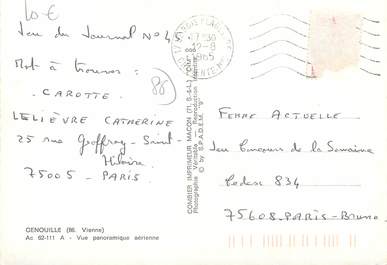 10 €
Jeu du Journal N° 45
Mot à trouver:
- CAROTTE.
86
LELIÈVRE CATHERINE
25 rue Geoffroy-Saint-
Hilaire
75005 - PARIS
GENOUILLE (86. Vienne)
Ac 62-111 A - Vue panoramique aérienne
COMBIER IMPRIMEUR MACON (71. S.-&-L.) "CIM"
© by S.P.A.D.E.M.
17 H 30
12-8
1985
FEMME ACTUELLE
Jeu Concours de la Semaine
Cedex 834
75608-PARIS-Brune